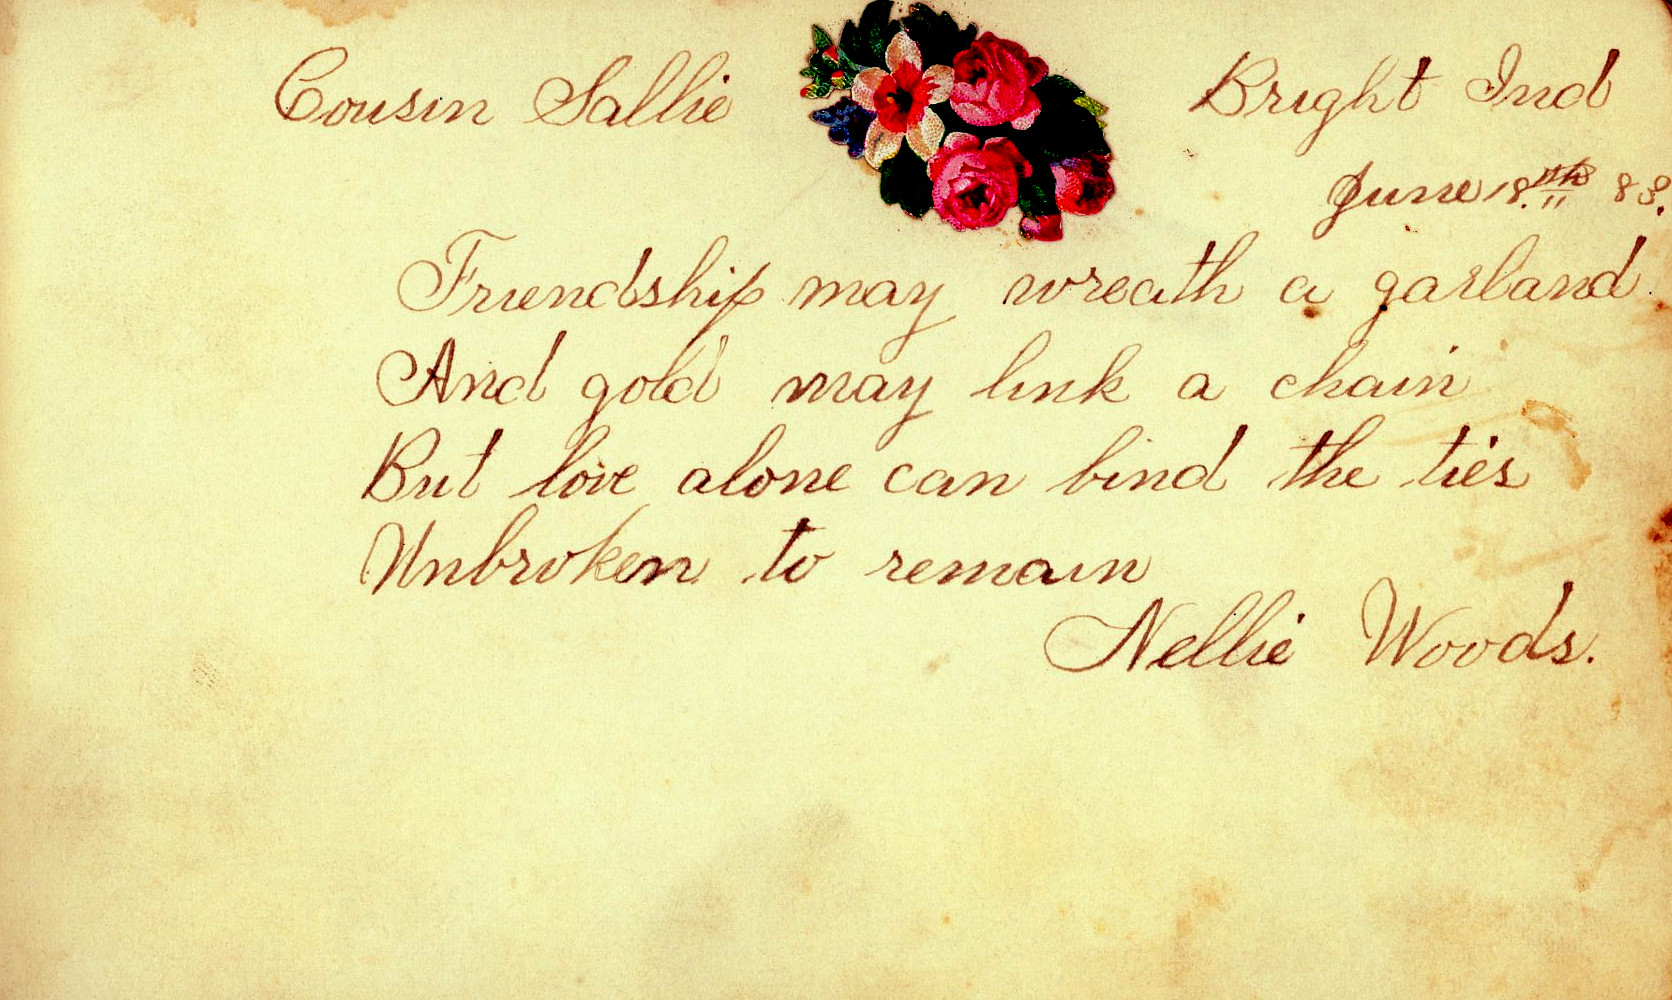 Cousin Sallie Bright Ind
June 18.th 83.
Friendship may wreath a garland
And gold may link a chain
But love alone can bind the ties
Unbroken to remain
Nellie Woods.